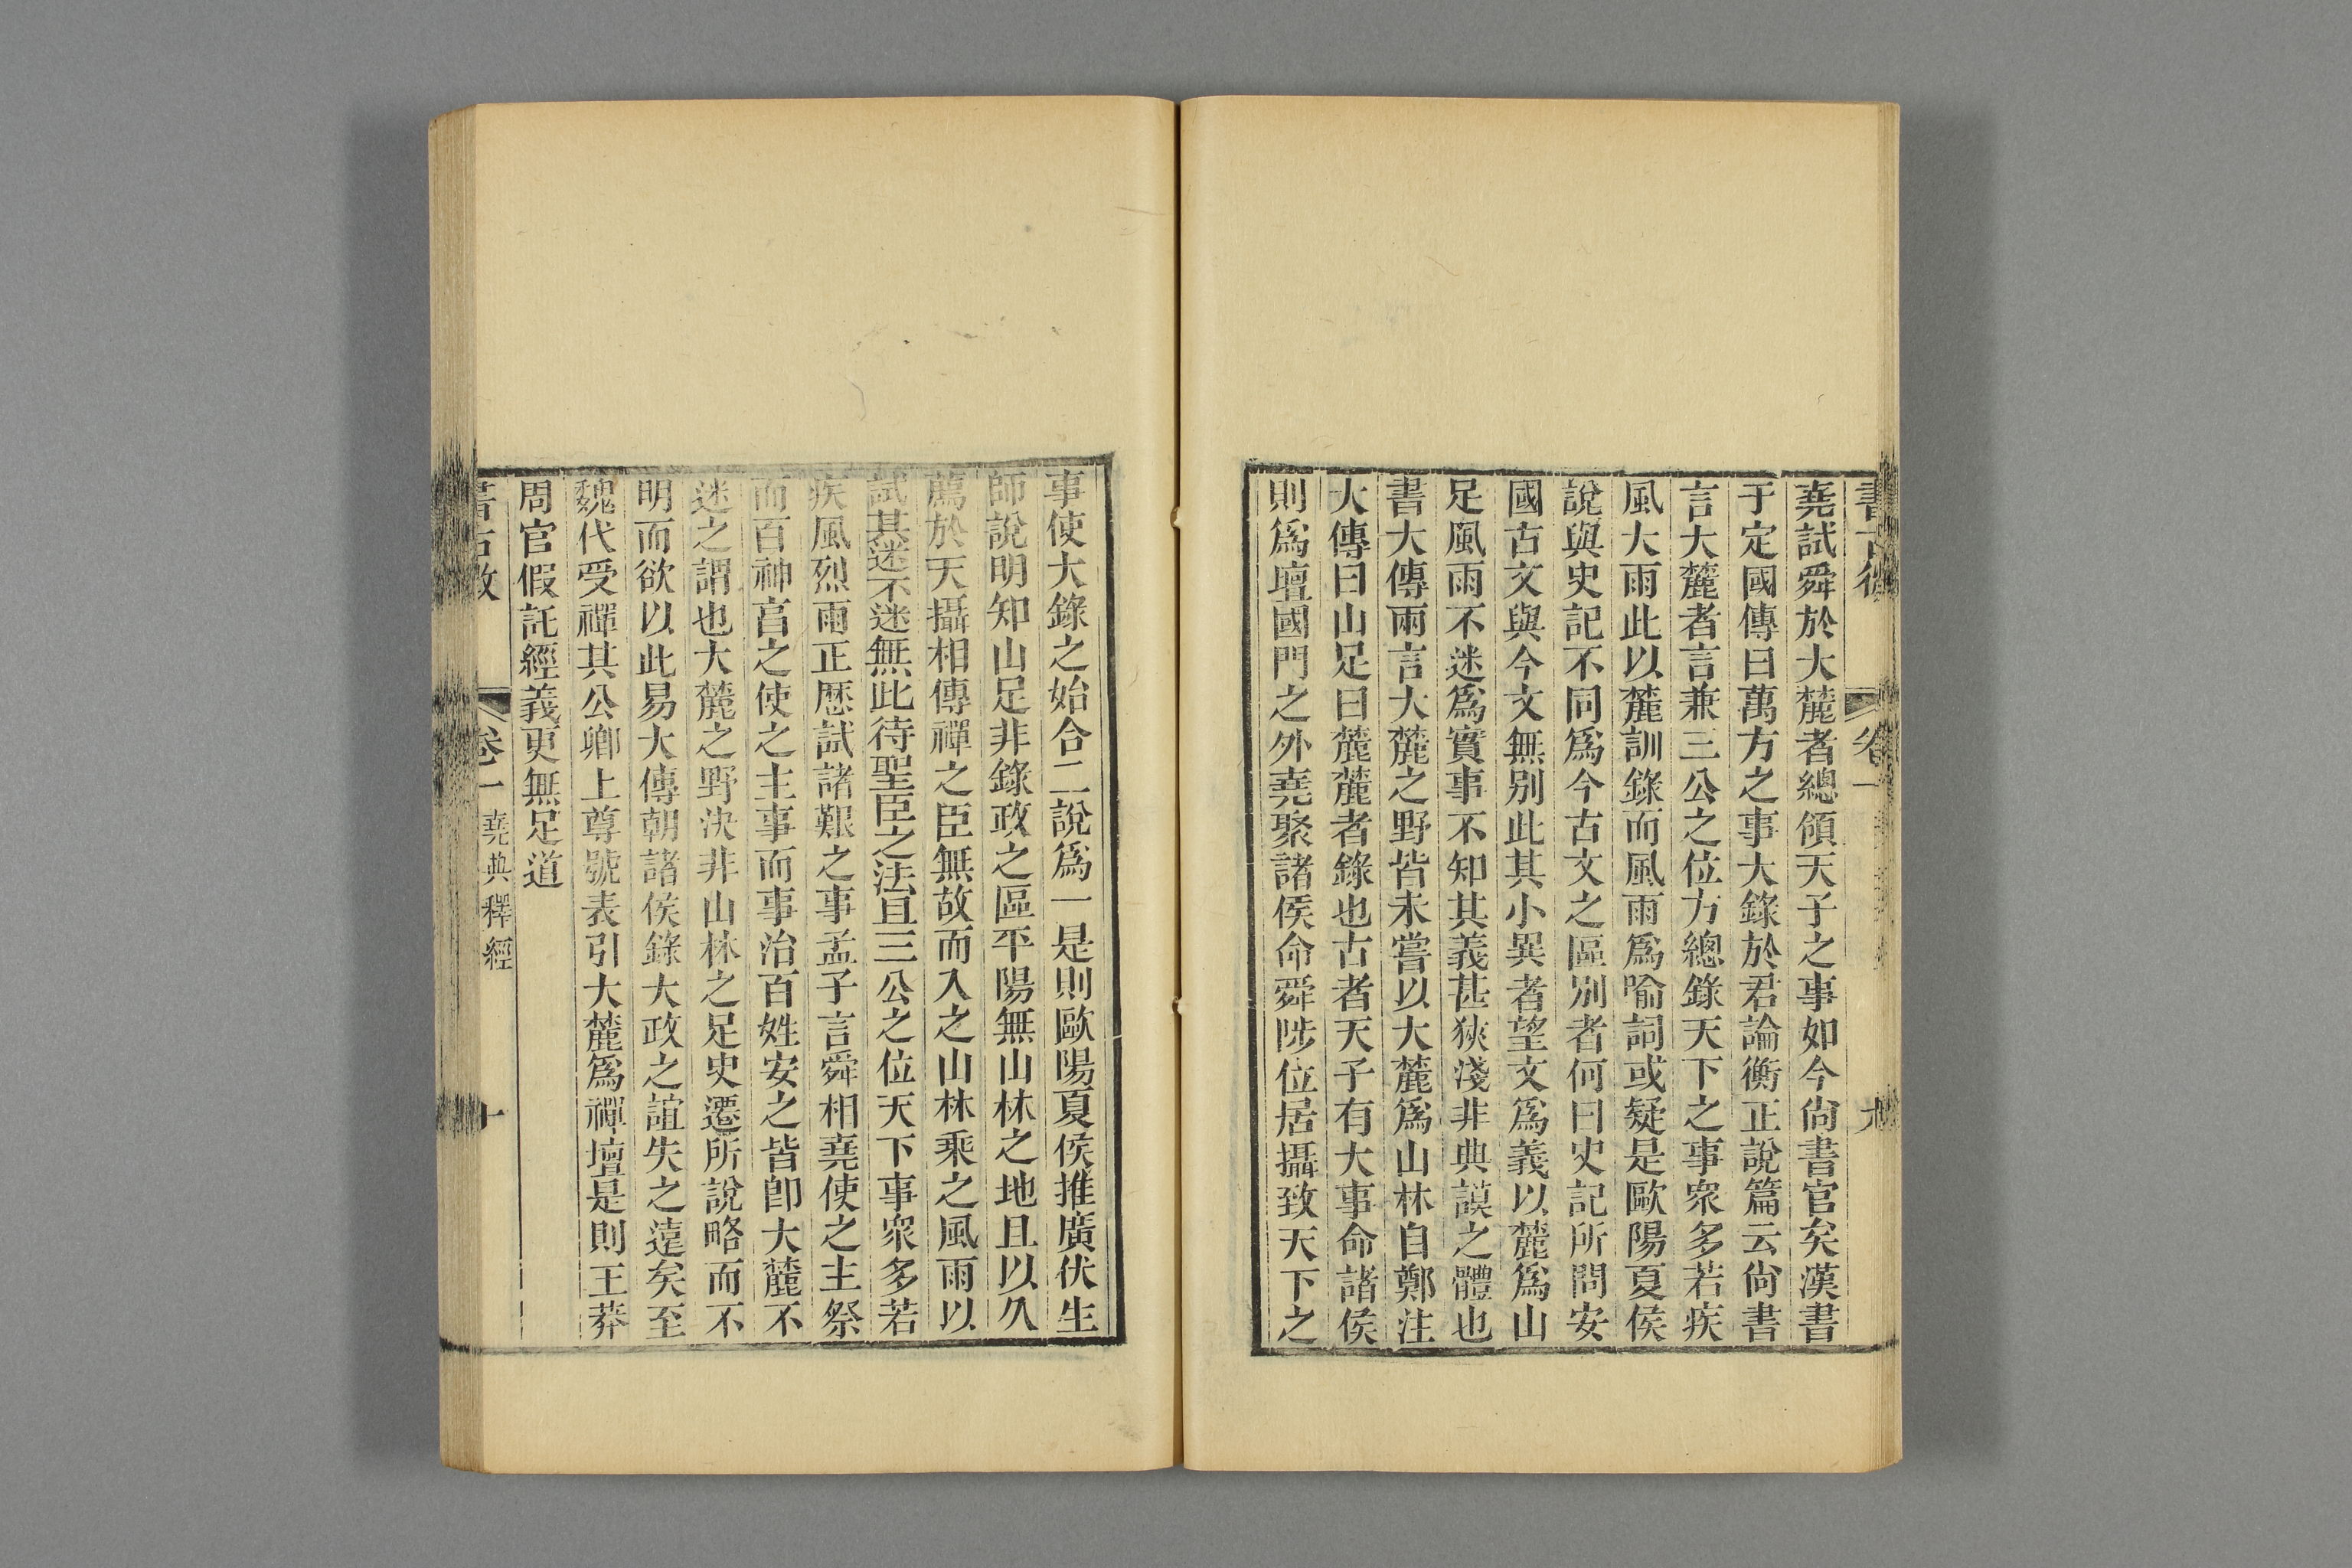 書古微
卷一
九
堯試舜於大麓者總領天子之事如今尙書官矣漢書
于定國傳曰萬方之事大錄於君論衡正說篇云尙書
言大麓者言兼三公之位方總錄天下之事衆多若疾
風大雨此以麓訓錄而風雨爲喻詞或疑是歐陽夏侯
說與史記不同爲今古文之區別者何曰史記所問安
國古文與今文無別此其小異者望文爲義以麓爲山
足風雨不迷爲實事不知其義甚狹淺非典謨之體也
書大傳兩言大麓之野皆未嘗以大麓爲山林自鄭注
大傳曰山足曰麓麓者錄也古者天子有大事命諸侯
則爲壇國門之外堯聚諸侯命舜陟位居攝致天下之
事使大錄之始合二說爲一是則歐陽夏侯推廣伏生
師說明知山足非錄政之區平陽無山林之地且以久
薦於天攝相傳禪之臣無故而入之山林乘之風雨以
試其迷不迷無此待聖臣之法且三公之位天下事衆多若
疾風烈雨正歷試諸艱之事孟子言舜相堯使之主祭
而百神享之使之主事而事治百姓安之皆卽大麓不
迷之謂也大麓之野決非山林之足史遷所說略而不
明而欲以此易大傳朝諸侯錄大政之誼失之遠矣至
魏代受禪其公卿上尊號表引大麓爲禪壇是則王莽
周官假託經義更無足道
書古微
卷一 堯典釋經
十